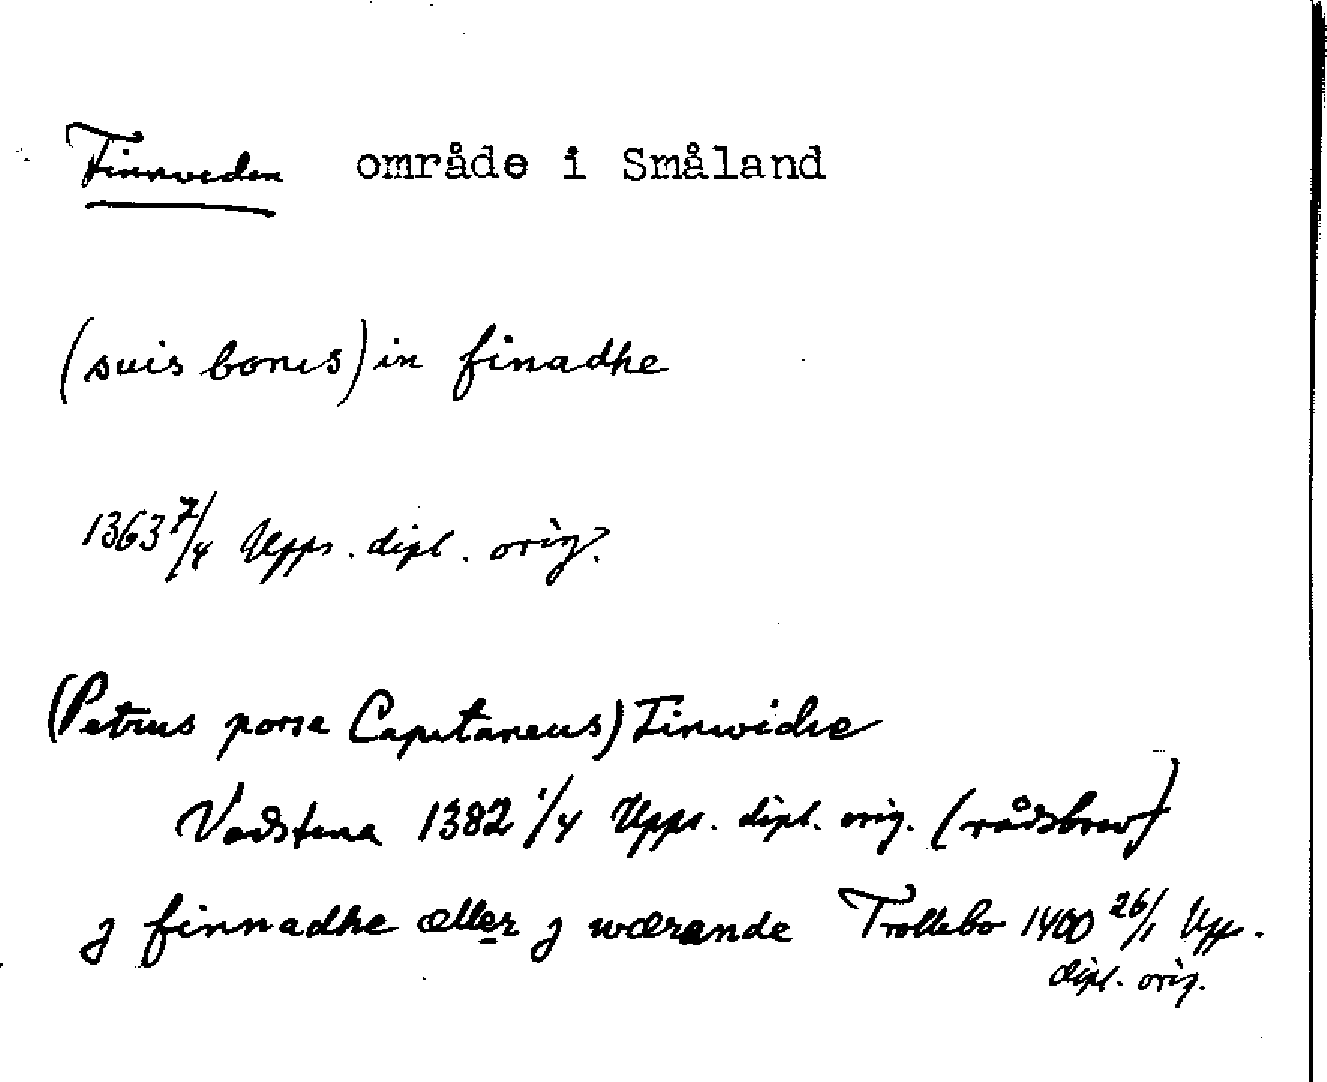 Finnveden område i Småland
(suis bonis) in finadhe
1363 7/4 Upps. dipl. orig.
(Petrus porse Capitaneus) Finwidhe
Vadstena 1382 1/4 Upps. dipl. orig. (rådsbrev)
j finnadhe æller j wærende Trollebo 1400 26/1 Upps.
dipl. orig.